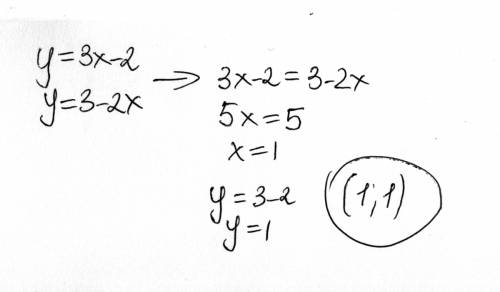 y=3x-2
y=3-2x → 3x-2=3-2x
5x=5
x=1
y=3-2
y=1
(1;1)